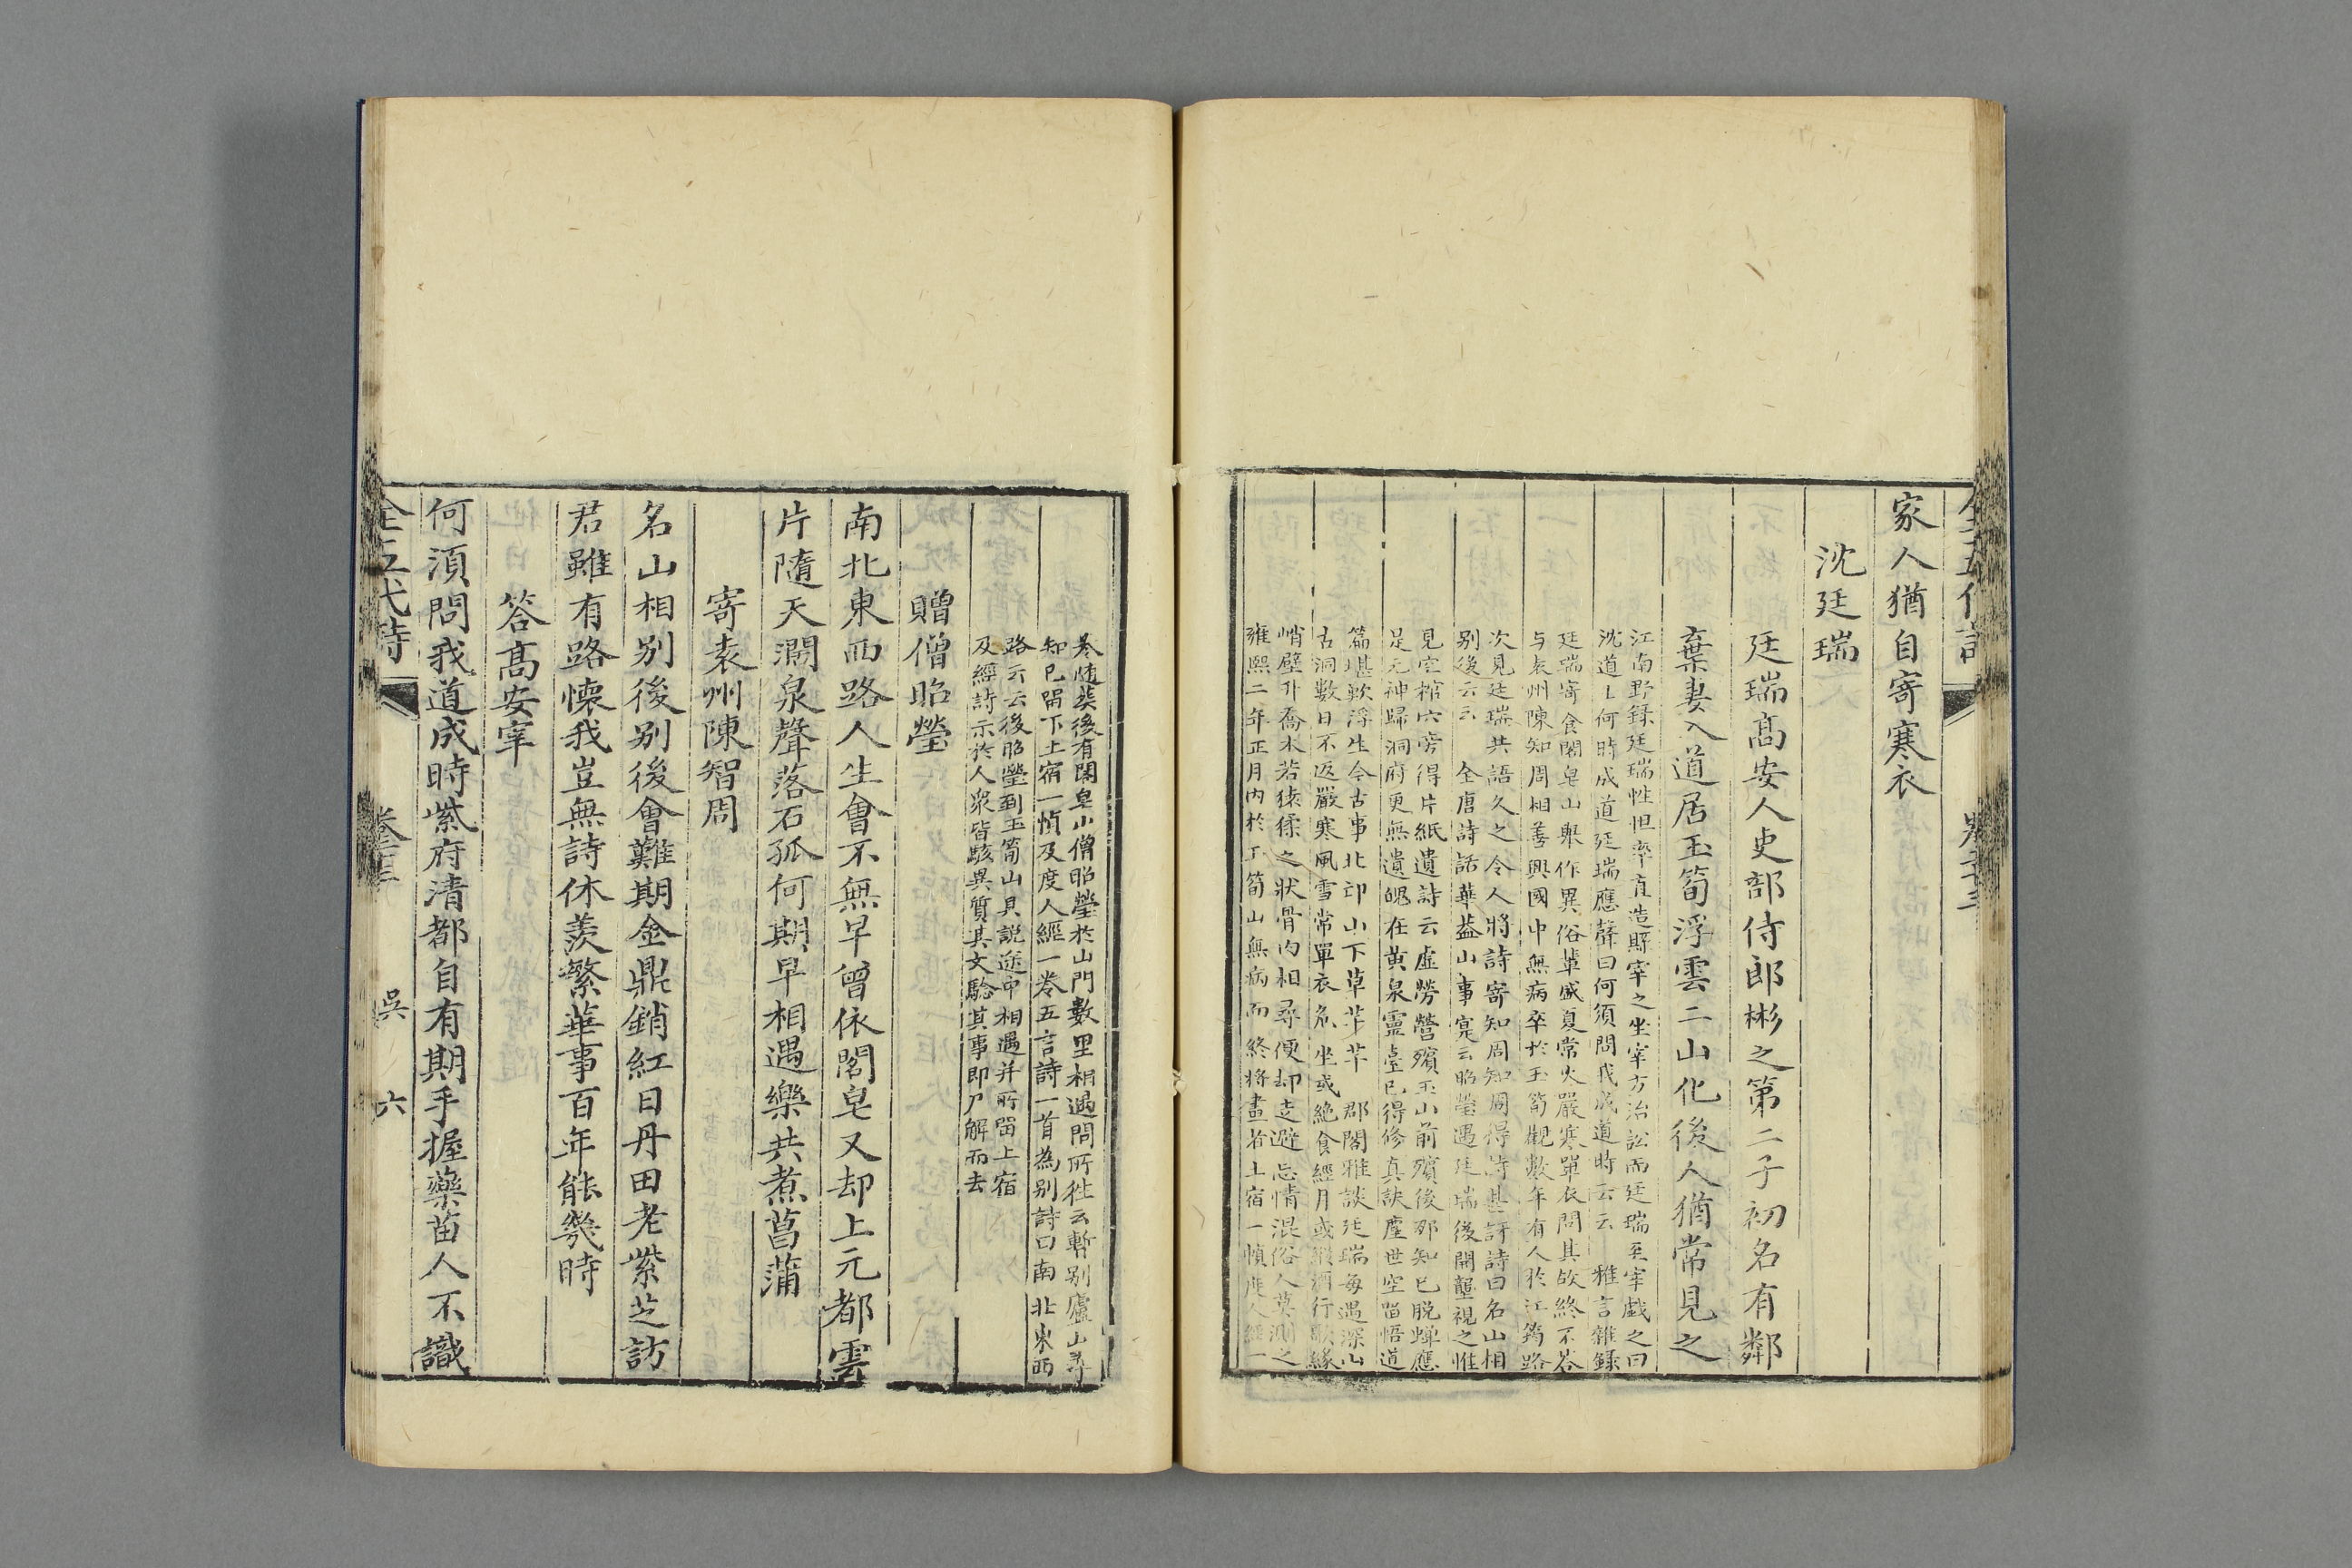 家人猶自寄寒衣
沈廷瑞
廷瑞高安人吏部侍郎彬之第二子初名有鄰
棄妻入道居玉笥浮雲二山化後人猶常見之
江南野錄廷瑞性坦率直造縣宰之坐宰方治訟而廷瑞至宰戲之曰
沈道士何時成道廷瑞應聲曰何須問我成道時云云 雅言雜錄
廷瑞寄食閤皂山舉作異俗輩盛夏常火嚴寒單衣問其故終不答
与袁州陳知周相善興國中無病卒於玉笥觀數年有人於江筠路
次見廷瑞共語久之令人將詩寄知周知周得詩甚訝詩曰名山相
别後云云 全唐詩話華葢山事寔云昭瑩遇廷瑞後開壟視之惟
見空棺穴旁得片紙遺詩云虛勞營殯玉山前殯後那知已脫蟬應
是元神歸洞府更無遺魄在黃泉靈臺已得修真訣塵世空畱悟道
篇堪歎浮生今古事北邙山下草芊芊 郡閣雅談廷瑞每遇深山
古洞數日不返嚴寒風雪常單衣危坐或絶食經月或縱酒行歌緣
峭壁升喬木若猿猱之狀骨肉相尋便却走避忘情混俗人莫測之
雍熙二年正月內於玉笥山無病而終將畫者土宿一幀度人經一
卷随葬後有閤皂小僧昭瑩於山門數里相遇問所徃云暫别廬山尋
知已畱下土宿一幀及度人經一卷五言詩一首為别詩曰南北東西
路云云後昭瑩到玉笥山具説途中相遇并所畱土宿
及經詩示於人衆皆駭異質其文騐其事即尸解而去
贈僧昭瑩
南北東西路人生會不無早曾依閤皂又却上元都雲
片隨天濶泉聲落石孤何期早相遇樂共煮菖蒲
寄袁州陳智周
名山相别後别後會難期金鼎銷紅日丹田老紫芝訪
君雖有路懷我豈無詩休羨繁華事百年能幾時
答高安宰
何須問我道成時紫府清都自有期手握藥苗人不識
全五代詩
吳 六